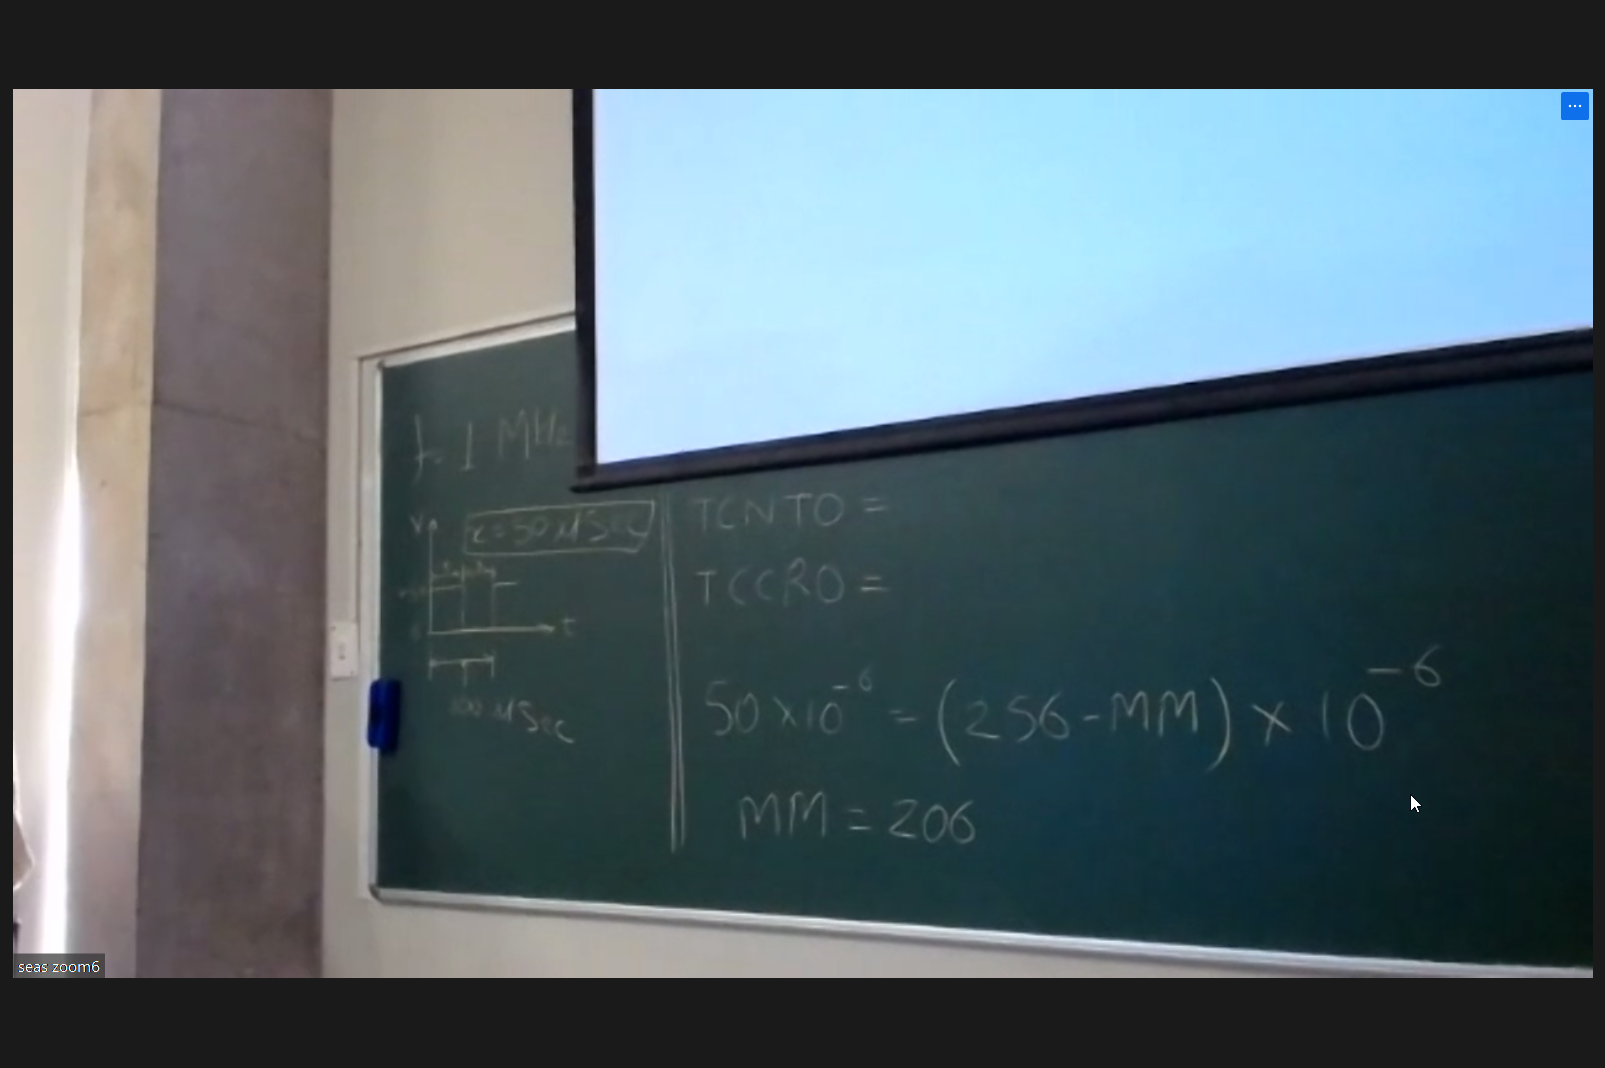 f = 1 MHz
V
τ = 50 μSec
t
100 μSec
TCNTO =
TCCRO =
50 x10⁻⁶ = (256-MM) x 10⁻⁶
MM = 206
seas zoom6